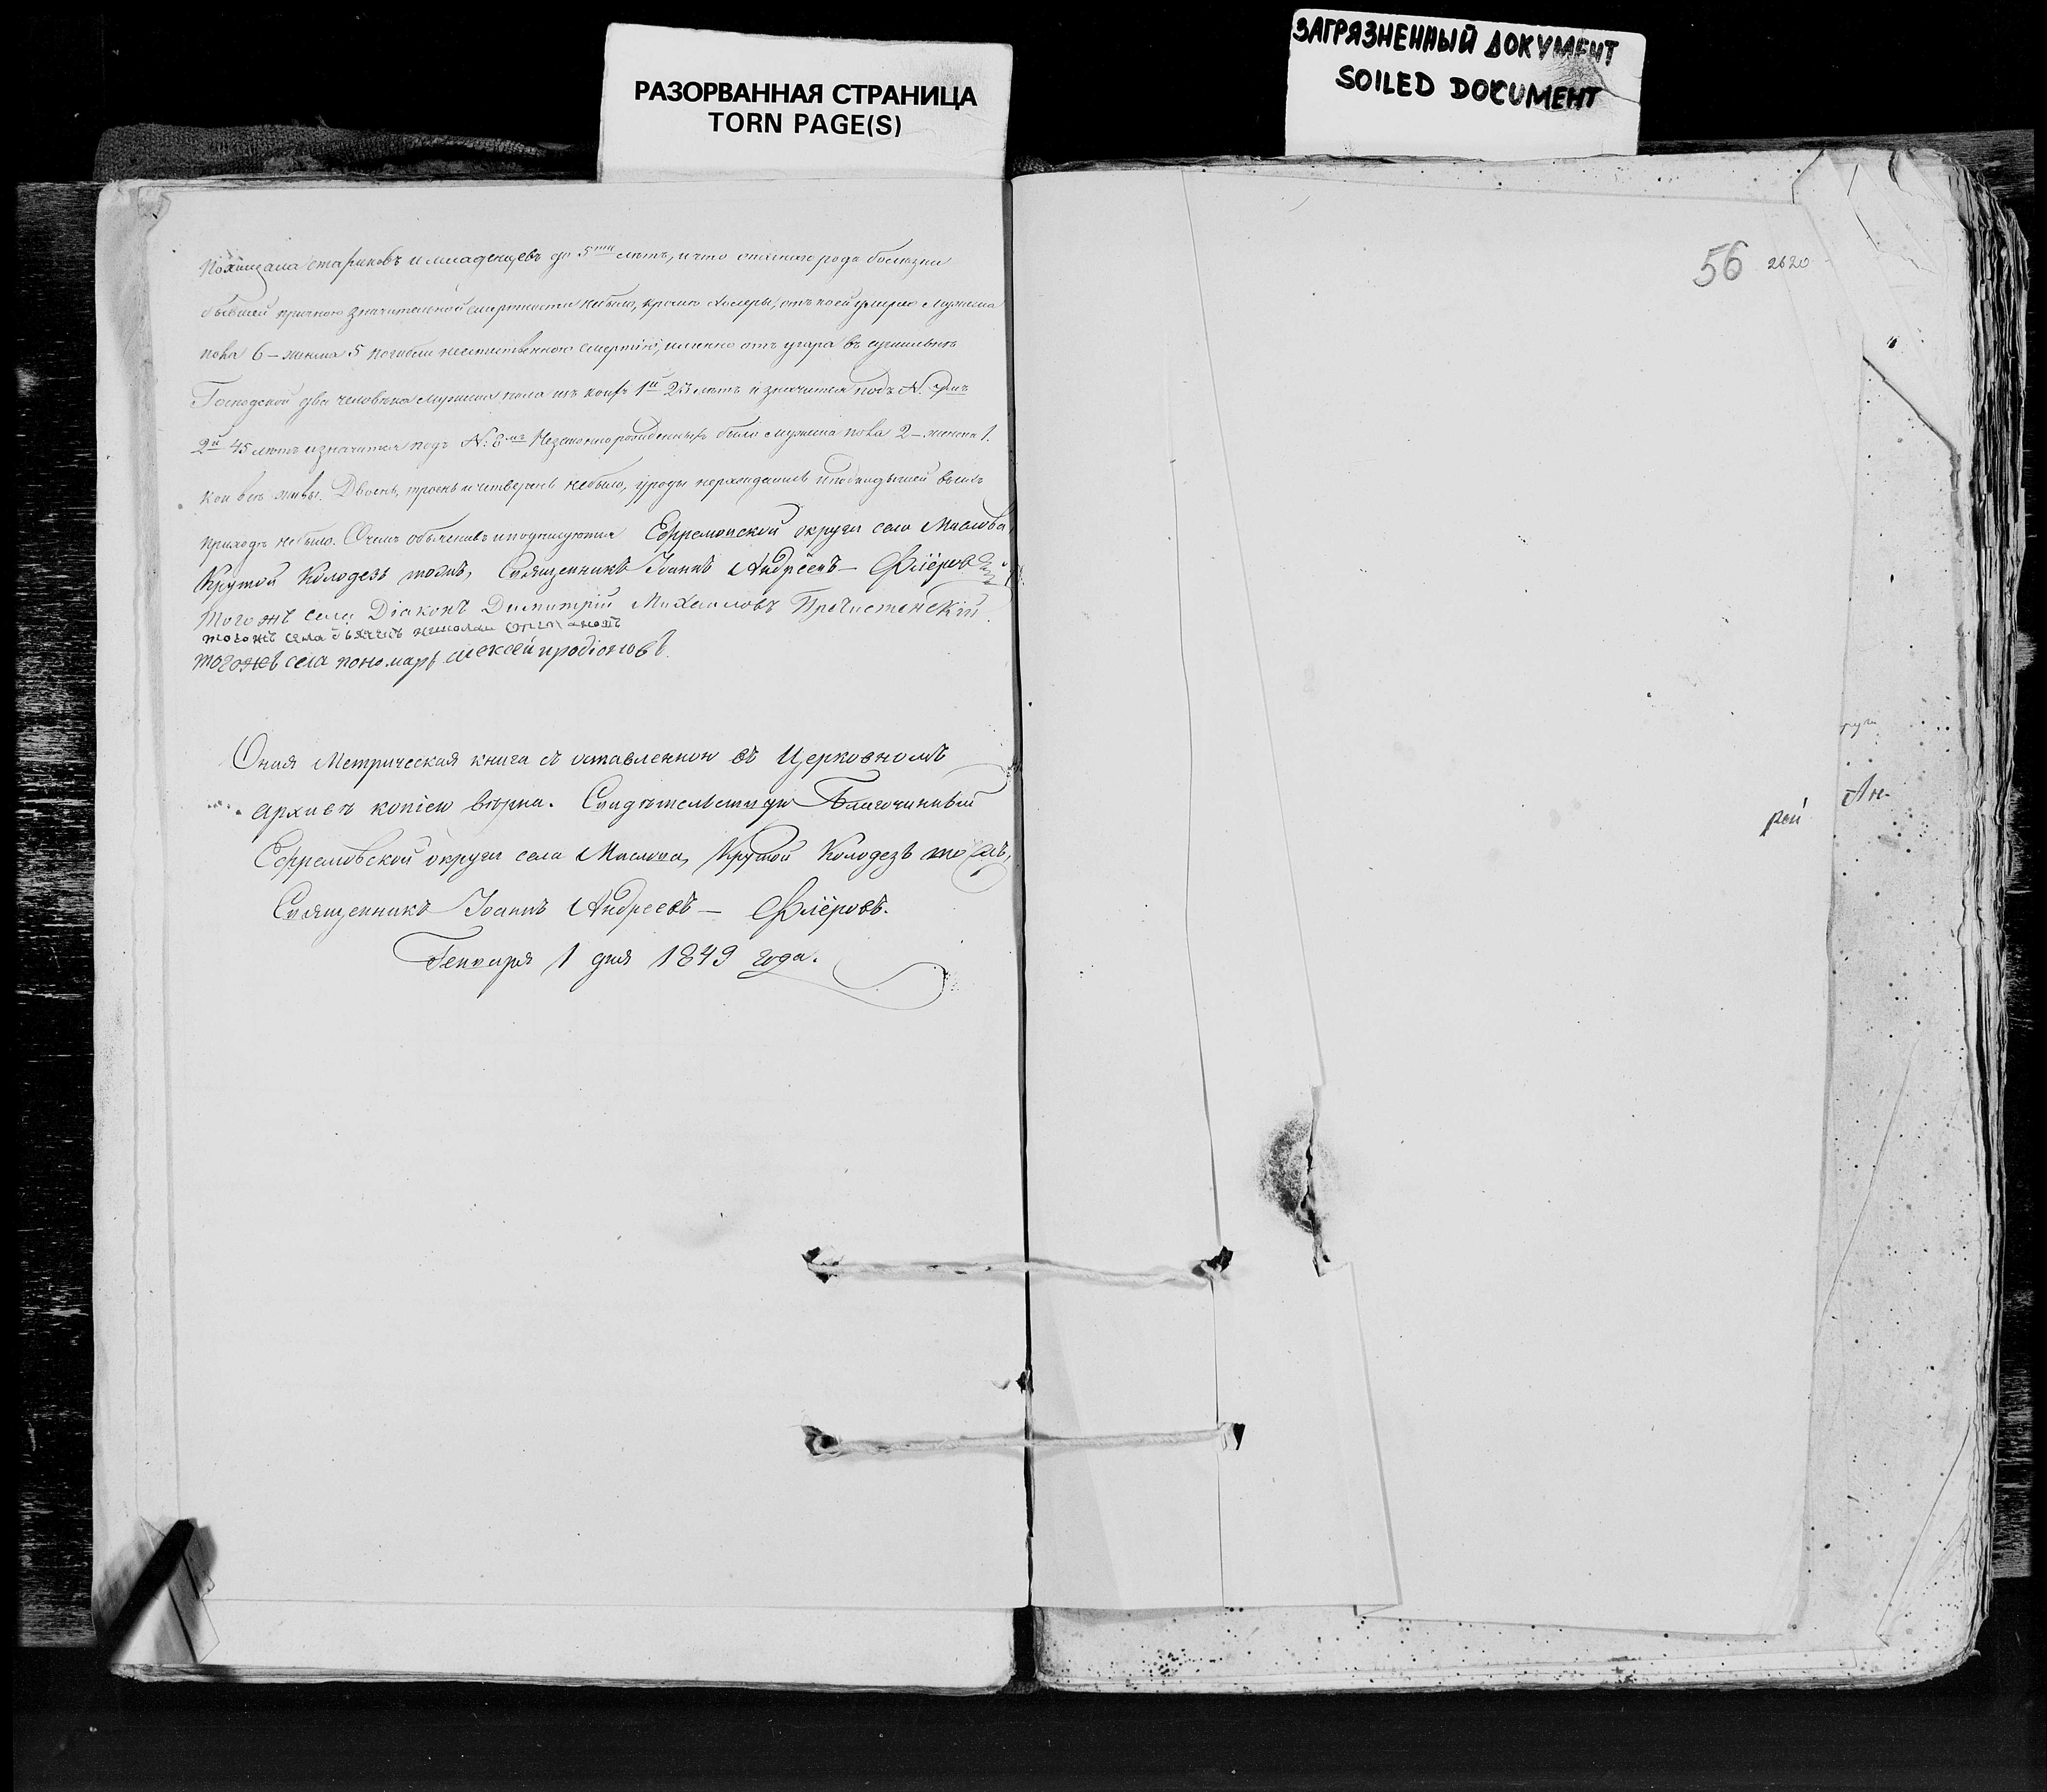 РАЗОРВАННАЯ СТРАНИЦА
TORN PAGE(S)
ЗАГРЯЗНЕННЫЙ ДОКУМЕНТ
SOILED DOCUMENT
56 2620
похищала стариковъ и младенцевъ до 5ти лѣтъ, и что рода болѣзни
бывшей значительной смертности небыло, кромѣ холеры, отъ коей умерло мужеска
пола 6 – женска 5 погибли неестественною смертію, именно отъ угара въ
Господской два человѣка мужеска пола изъ коихъ 1й 23 лѣтъ и значится подъ N.
2й 45 лѣтъ и значится подъ N: 8мъ Незаконнорожденныхъ было мужеска пола 2 – женска 1.
кои всѣ живы. Двоень, троень и четверень небыло, уроды нерождались и подкидышей въ семъ
приходѣ небыло. О чемъ объяснивъ и подписуются Ефремовской округи села Маслова,
Крутой Колодезь тожъ, Священникъ Іоаннъ Андреевъ – Флёровъ
Тогожъ села Діаконъ Димитрій Михаиловъ Пречистенскій.
тогожъ села дьячекъ николай
тогожъ села пономарь алексей иродіоновъ
Оная Метрическая книга съ оставленною въ Церковномъ
архивѣ копіею вѣрна. Свидѣтельствую Благочинный
Ефремовской округи села Маслова, Крутой Колодезь тожъ,
Священникъ Іоаннъ Андреевъ – Флёровъ.
Генваря 1 дня 1849 года.
Ан-
рей